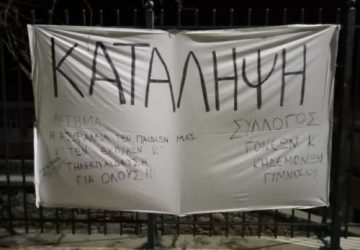 ΚΑΤΑΛΗΨΗ
ΑΙΤΗΜΑ
Η ΑΣΦΑΛΕΙΑ ΤΩΝ ΠΑΙΔΙΩΝ ΜΑΣ
ΤΩΝ Κ΄
ΤΗΛΕΚΠΑΙΔΕΥΣΗ
ΓΙΑ ΟΛΟΥΣ!!!
ΣΥΛΛΟΓΟΣ
ΓΟΝΕΩΝ Κ΄
ΚΗΔΕΜΟΝΩΝ
ΓΥΜΝΑΣΙΟΥ